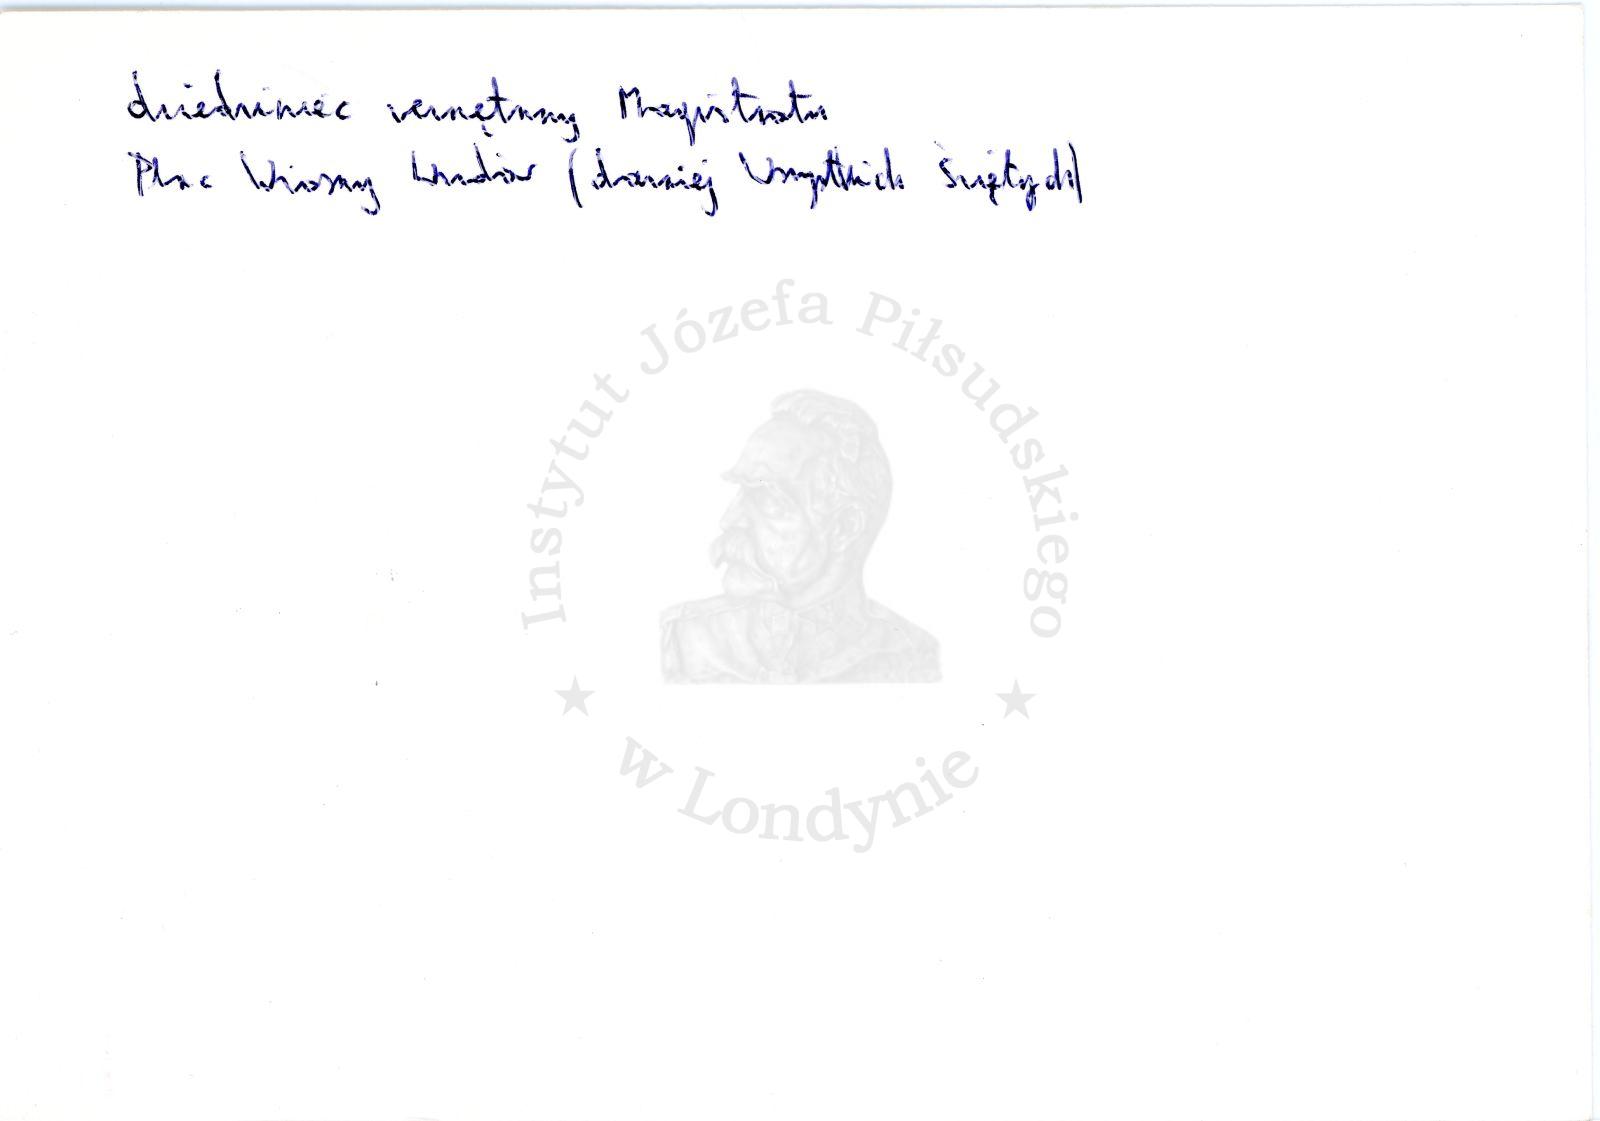 dziedziniec wewnętrzny Magistratu
Plac Wiosny Ludów (dawniej Wszystkich Świętych)
Instytut Józefa Piłsudskiego
★ w Londynie ★